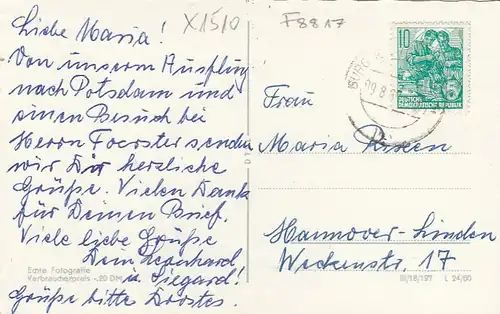 Liebe Maria!
Von unserm Ausflug
nach Potsdam und
einen Besuch bei
Herrn Foerster senden
wir Dir herzliche
Grüße. Vielen Dank
für Deinen Brief.
Viele liebe Grüße
Dein Leonhard
u. Siegard!
Grüße bitte Drostes.
Echte Fotografie
Verbraucherpreis -.20 DM
X1510
F8817
10
DEUTSCHE
DEMOKRATISCHE REPUBLIK
BURG
Frau
Maria
Hannover-Linden
Weckenstr. 17
III/18/197 L 24/60